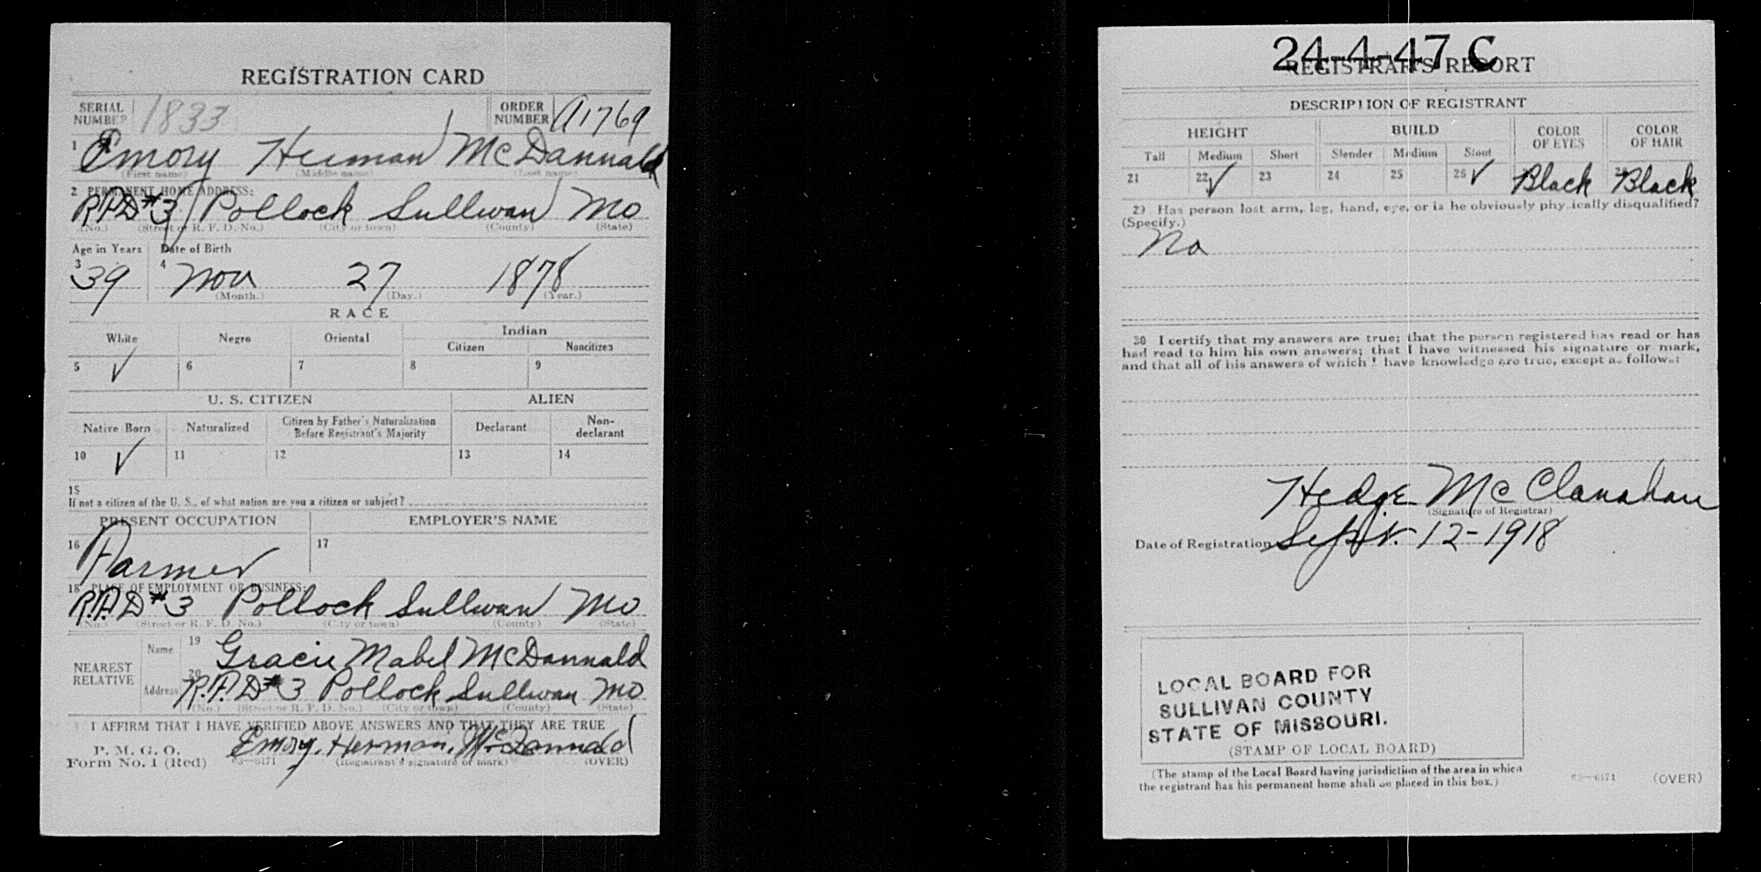 REGISTRATION CARD
SERIAL NUMBER 1833 ORDER NUMBER A1769
1 Emory Herman McDannald
(First name) (Middle name) (Last name)
2 PERMANENT HOME ADDRESS:
R.F.D #3 Pollock Sullivan Mo
(No.) (Street or R. F. D. No.) (City or town) (County) (State)
Age in Years Date of Birth
3 39 4 Nov 27 1878
(Month.) (Day.) (Year.)
RACE
White Negro Oriental Indian
Citizen Noncitizen
5 ✓ 6 7 8 9
U. S. CITIZEN ALIEN
Native Born Naturalized Citizen by Father's Naturalization Before Registrant's Majority Declarant Non-declarant
10 ✓ 11 12 13 14
15
If not a citizen of the U. S., of what nation are you a citizen or subject?
PRESENT OCCUPATION EMPLOYER'S NAME
16 Farmer 17
18 PLACE OF EMPLOYMENT OR BUSINESS:
R.F.D #3 Pollock Sullivan Mo
(No.) (Street or R. F. D. No.) (City or town) (County) (State)
NEAREST RELATIVE Name 19 Gracie Mabel McDannald
Address 20 R.F.D #3 Pollock Sullivan Mo
(No.) (Street or R. F. D. No.) (City or town) (County) (State)
I AFFIRM THAT I HAVE VERIFIED ABOVE ANSWERS AND THAT THEY ARE TRUE
P. M. G. O.
Form No. 1 (Red) Emory. Herman. McDannald
03—6171 (Registrant's signature or mark) (OVER)
24-4-47 C
REGISTRAR'S REPORT
DESCRIPTION OF REGISTRANT
HEIGHT BUILD COLOR OF EYES COLOR OF HAIR
Tall Medium Short Slender Medium Stout
21 22 ✓ 23 24 25 26 ✓ Black Black
29 Has person lost arm, leg, hand, eye, or is he obviously physically disqualified?
(Specify.)
No
30 I certify that my answers are true; that the person registered has read or has
had read to him his own answers; that I have witnessed his signature or mark,
and that all of his answers of which I have knowledge are true, except as follows:
Hedge McClanahan
(Signature of Registrar)
Date of Registration Sept. 12-1918
LOCAL BOARD FOR
SULLIVAN COUNTY
STATE OF MISSOURI.
(STAMP OF LOCAL BOARD)
(The stamp of the Local Board having jurisdiction of the area in which
the registrant has his permanent home shall be placed in this box.)
03—6171 (OVER)